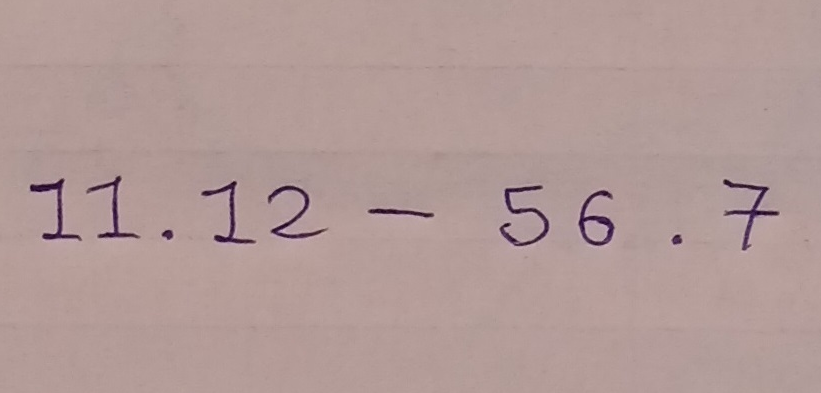 11.12 - 56.7